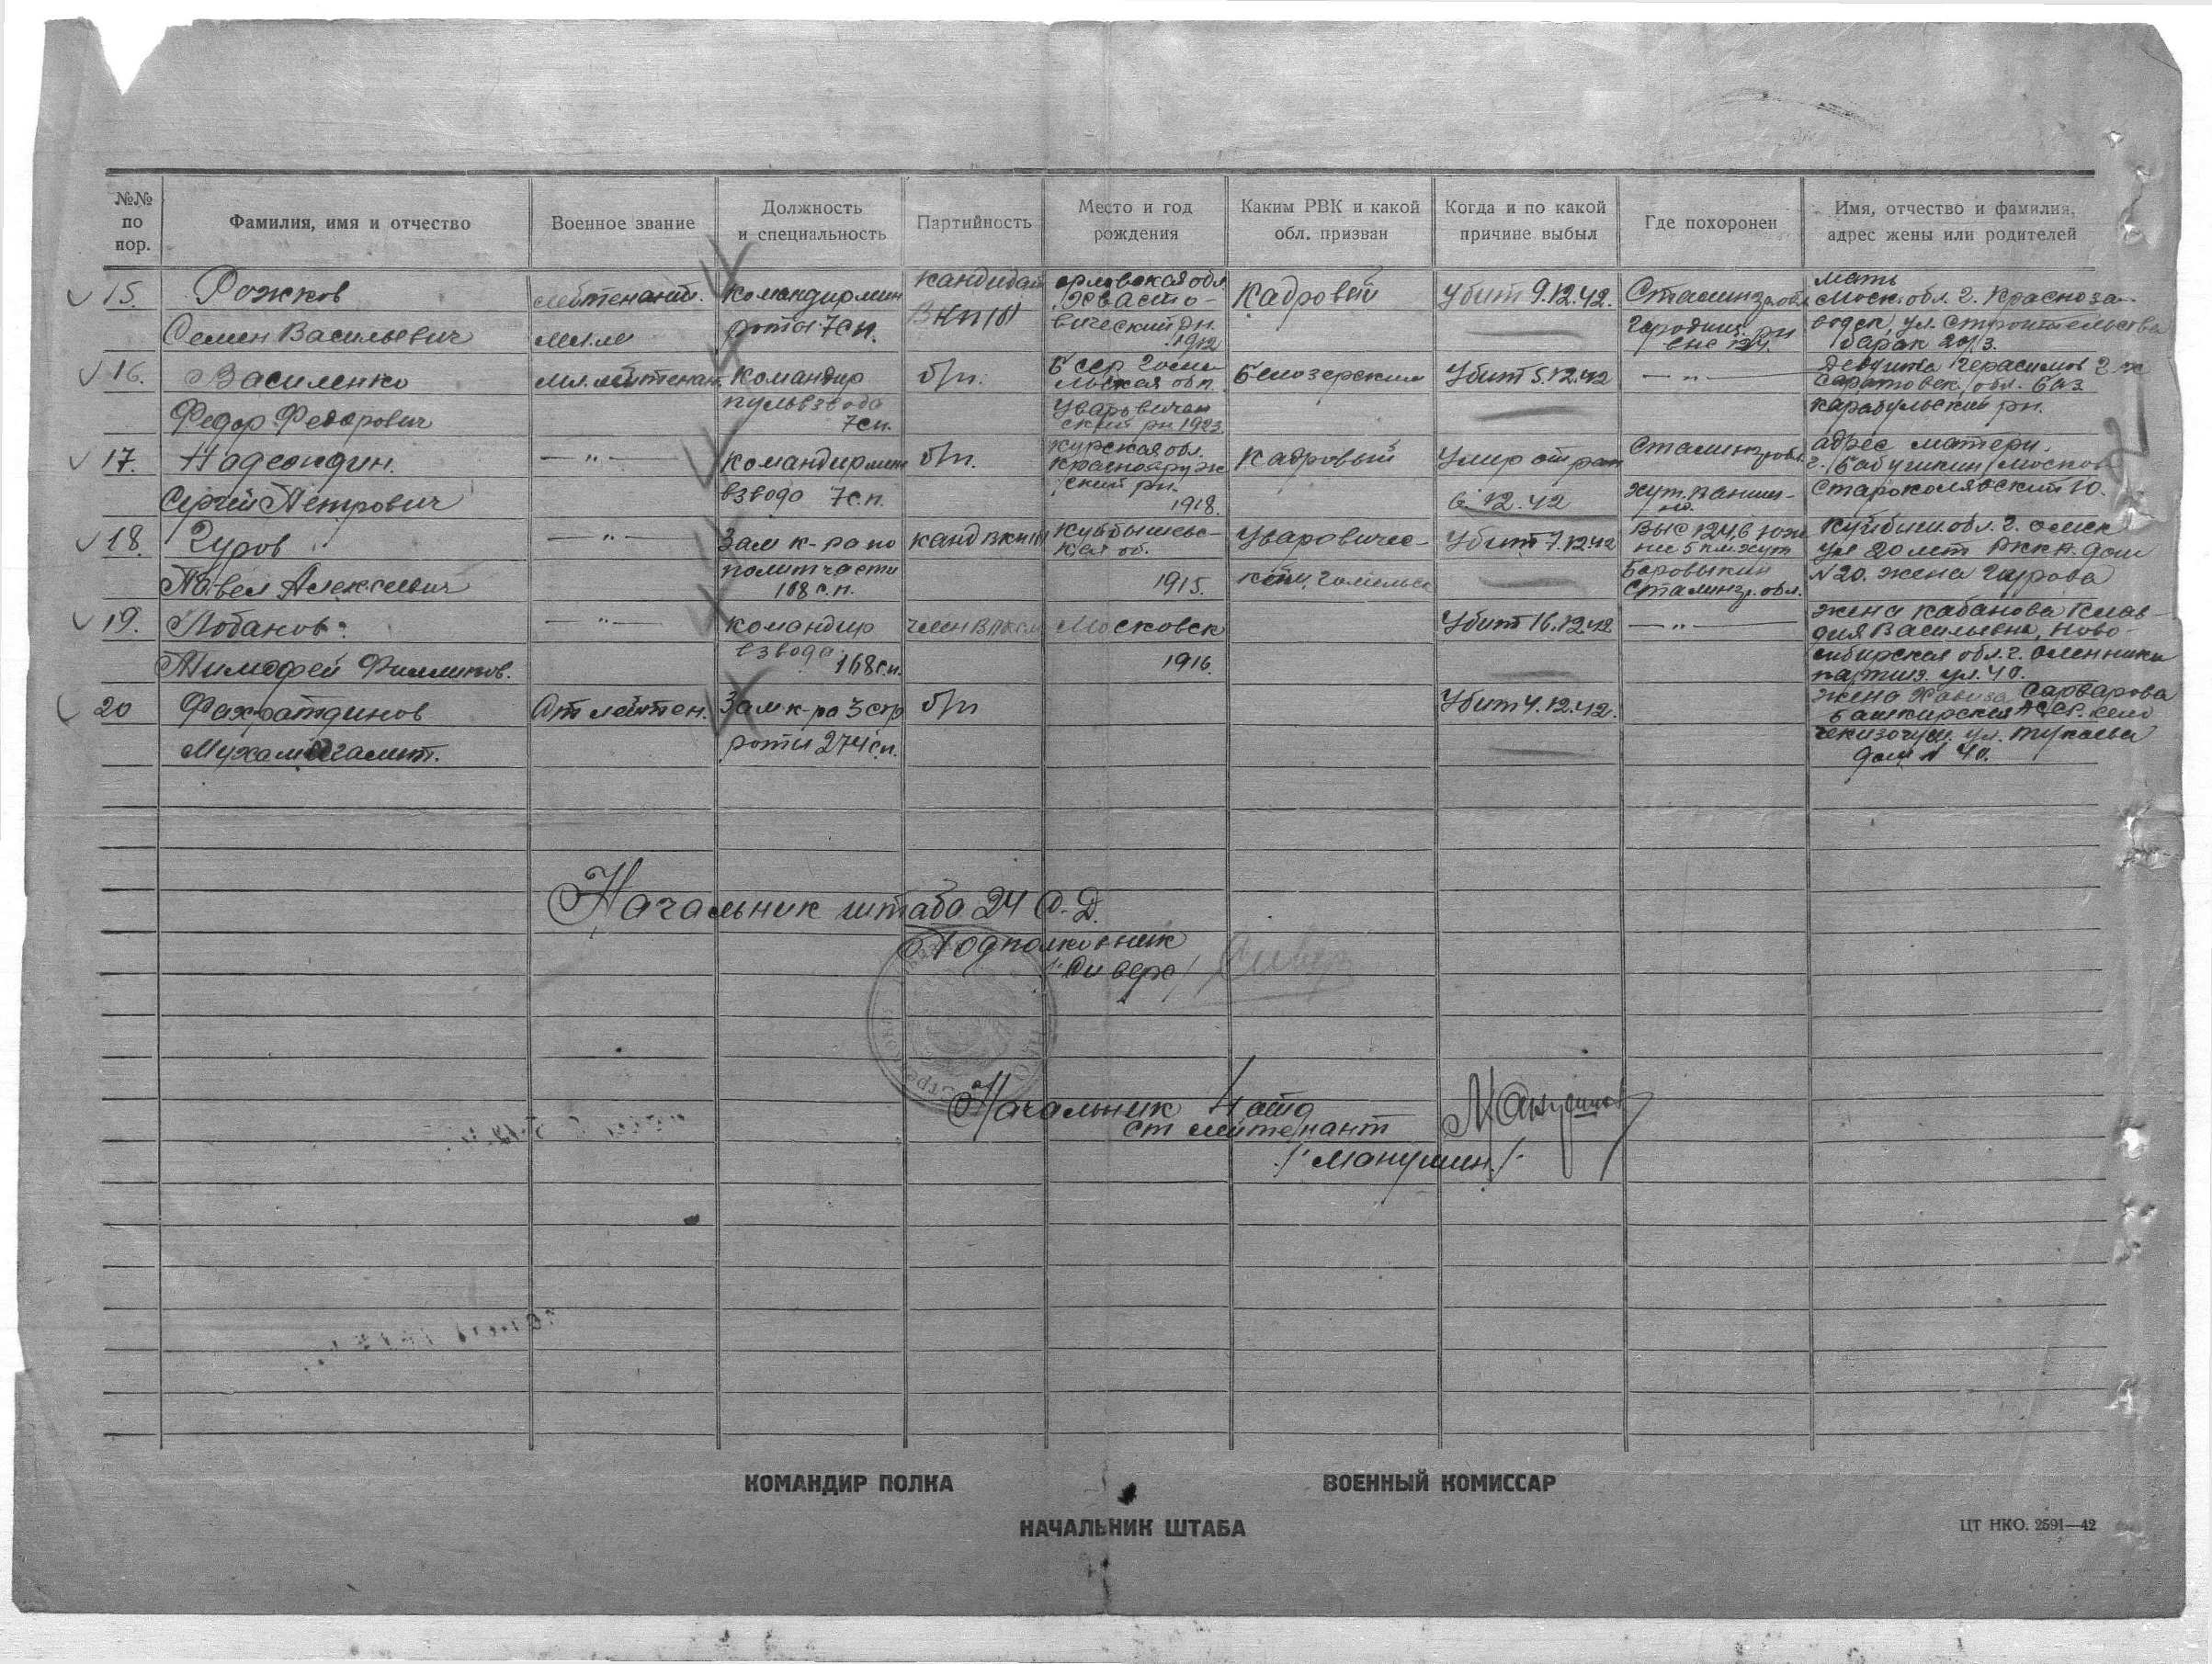 №№ по пор.
Фамилия, имя и отчество
Военное звание
Должность и специальность
Партийность
Место и год рождения
Каким РВК и какой обл. призван
Когда и по какой причине выбыл
Где похоронен
Имя, отчество и фамилия, адрес жены или родителей
15. Рожков
Семен Васильевич
лейтенант.
Командир мин
роты 7 сп.
кандидат
ВКП(б)
орловская обл
Хвасто-
вический рн.
1912
Кадровый
Убит 9.12.42.
Сталингр. обл
Городищ. рн
мать
Моск. обл. г. Красноза-
водск, ул. Строительства
барак 20/3.
16. Василенко
Федор Федорович
мл. лейтенан
Командир
пульвзвода
7 сп.
б/п.
БССР Гоме
льская обл.
Уваровичен
ский рн 1923.
Белозерским
Убит 5.12.42
— " —
Саратовск. обл.
карабульский рн.
17.
Сергей Петрович
— " —
Командир мин
взвода 7 сп.
б/п.
Курская обл.
Краснояруж
ский рн.
1918.
Кадровый
Умер от ран
6.12.42
Сталингр обл
хут.
адрес матери.
г. Бабушкин Москов
18. Гуров
Павел Алексеевич
— " —
Зам к-ра по
политчасти
168 с.п.
канд ВКП(б)
Куйбышевс-
кая об.
1915.
Уваровичес
ким, Гомельс
Убит 7.12.42
Выс 124,6 юж
нее 5 км хут
Боровыкин
Сталингр. обл.
Куйбыш. обл. г.
ул 20 лет РККА. дом
№20. жена Гурова
19. Лобанов.
Тимофей Филлипов.
— " —
командир
взвода
168 сп.
член
Московск
1916.
Убит 16.12.42
— " —
жена Кабанова Клав-
дия Васильевна, Ново-
сибирская обл. г.
партиз. ул. 40.
20 Фахратдинов
Ст лейтен.
Зам к-ра 3 стр
роты 274 сп.
б/п
Убит 4.12.42.
жена Сарварова
Башкирская АССР. село
ул. Тукаева
дом № 40.
Начальник штаба 24 С.Д.
Подполковник
Начальник 4 отд
ст лейтенант
/Манушин./
КОМАНДИР ПОЛКА
ВОЕННЫЙ КОМИССАР
НАЧАЛЬНИК ШТАБА
ЦТ НКО. 2591—42